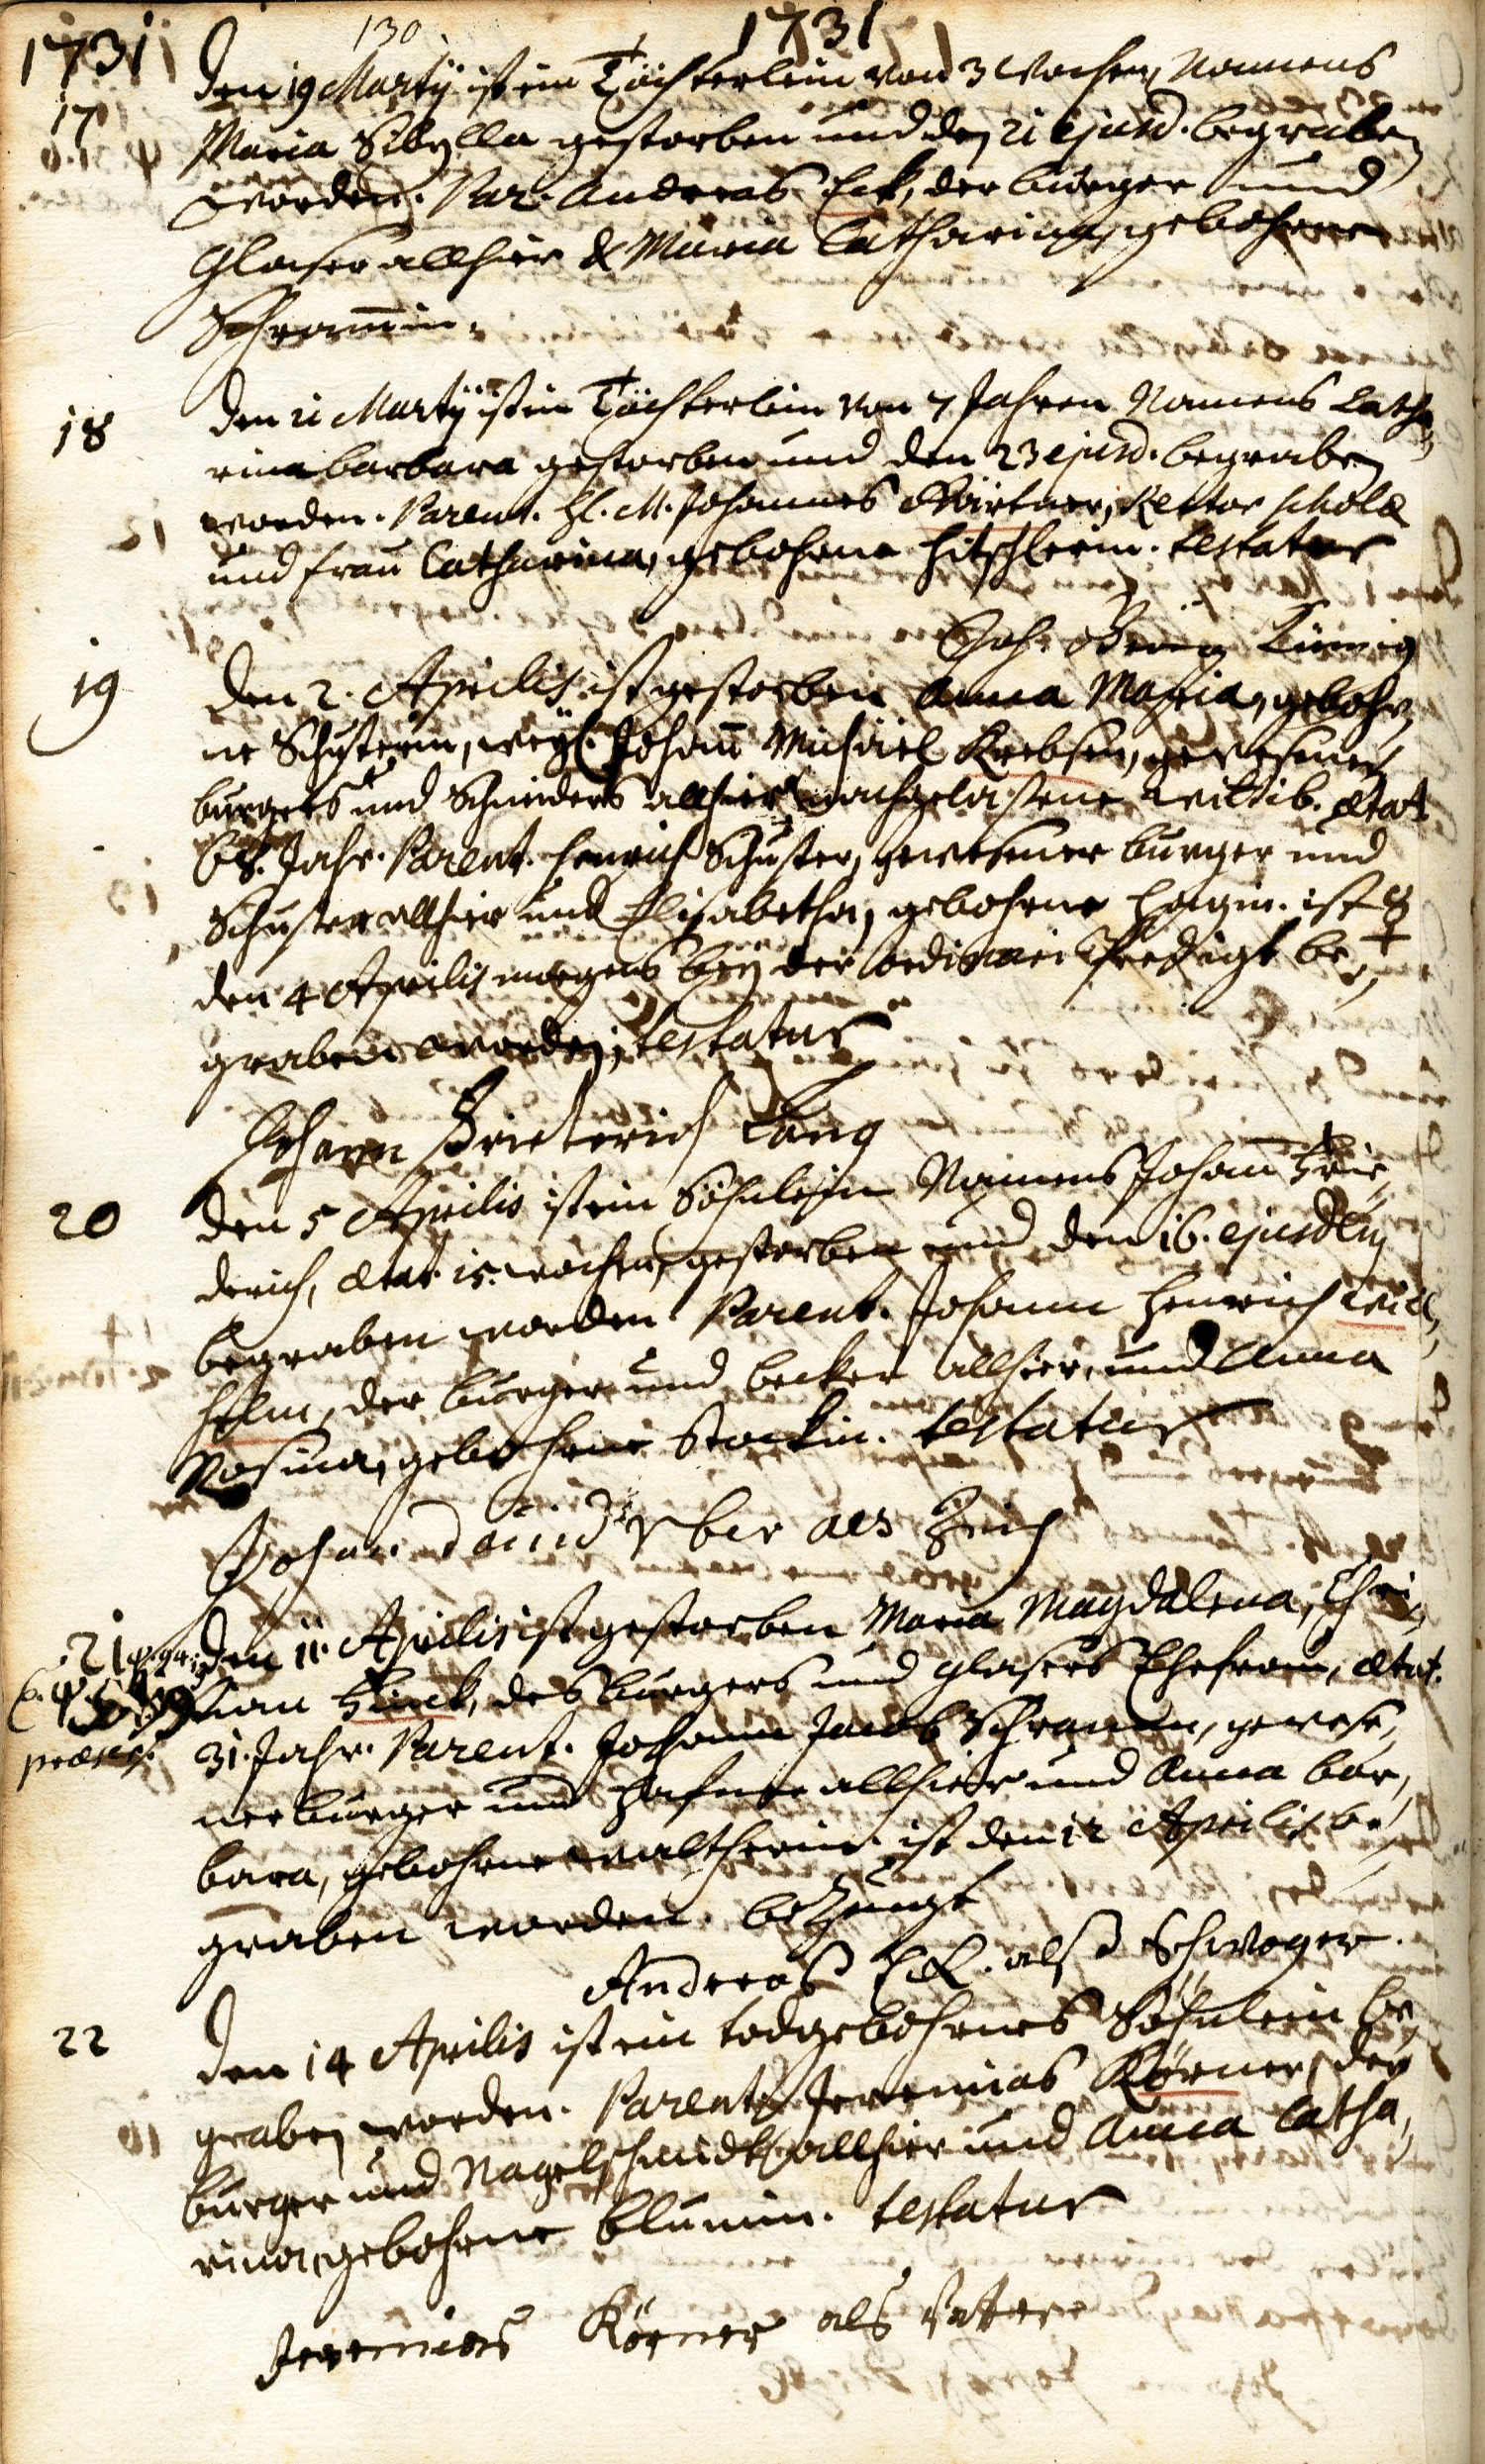 130
1731 1731
17 den 19 Martÿ ist ein Töchterlein von 3 Wochen, Namens
Maria Sibylla gestorben und den 21 ejusd. begraben
worden. Par. Andreas Eck, der burger und
Glaser allhier & Maria Catharina, gebohrne
Schram̄in.
18 den 21 Martÿ ist ein Töchterlein von 7 Jahren Namens Catha,
rina barbara gestorben und den 23 ejusd. begraben
worden. Parent. H. M. Johannes Rector scholæ
und frau Catharina, gebohrne testatur
Joh. Georg
19 den 2. Aprilis ist gestorben Anna Maria, gebohr,
ne Schusterin, weÿl. Johan̄ Michäel Krebsen, gewesenen
burgers und Schneiders allhier nachgelaßene Wittib. ætat
68. Jahr. Parent. Henrich Schuster, gewesener burger und
Schuster allhier und Elisabetha, gebohrne ist
den 4 Aprilis morgens beÿ der ordinari Predigt be,
graben worden, testatur
Johann Frieterich Lang
20 den 5 Aprilis ist ein Söhnlein Namens Johan̄ Frie,
derich, ætat. 15. wochen, gestorben und den 16. ejusdem
begraben worden. Parent. Johann Henrich Will,
helm, der burger und becker allhier, und Anna
Rosina, gebohrne Stockin. testatur
Johan. Daüid
21 den 11. Aprilis ist gestorben Maria Magdalena, Chri,
stian des burgers und glasers Ehefrau, ætat.
31. Jahr. Parent. Johann Jacob Schrammen, gewese,
ner burger und Hafner allhier und Anna bar,
bara, gebohrne Waltherin. ist den 12 Aprilis be,
graben worden. bezeugt
Andreas Eck. alß Schwoger.
22 den 14 Aprilis ist ein todgebohrnes Söhnlein be,
graben worden. Parent. Jeremias Körner, der
burger und Nagelschmidt allhier und Anna Catha,
rina, gebohrne Blumin. testatur
Jeremias Körner als Vatter